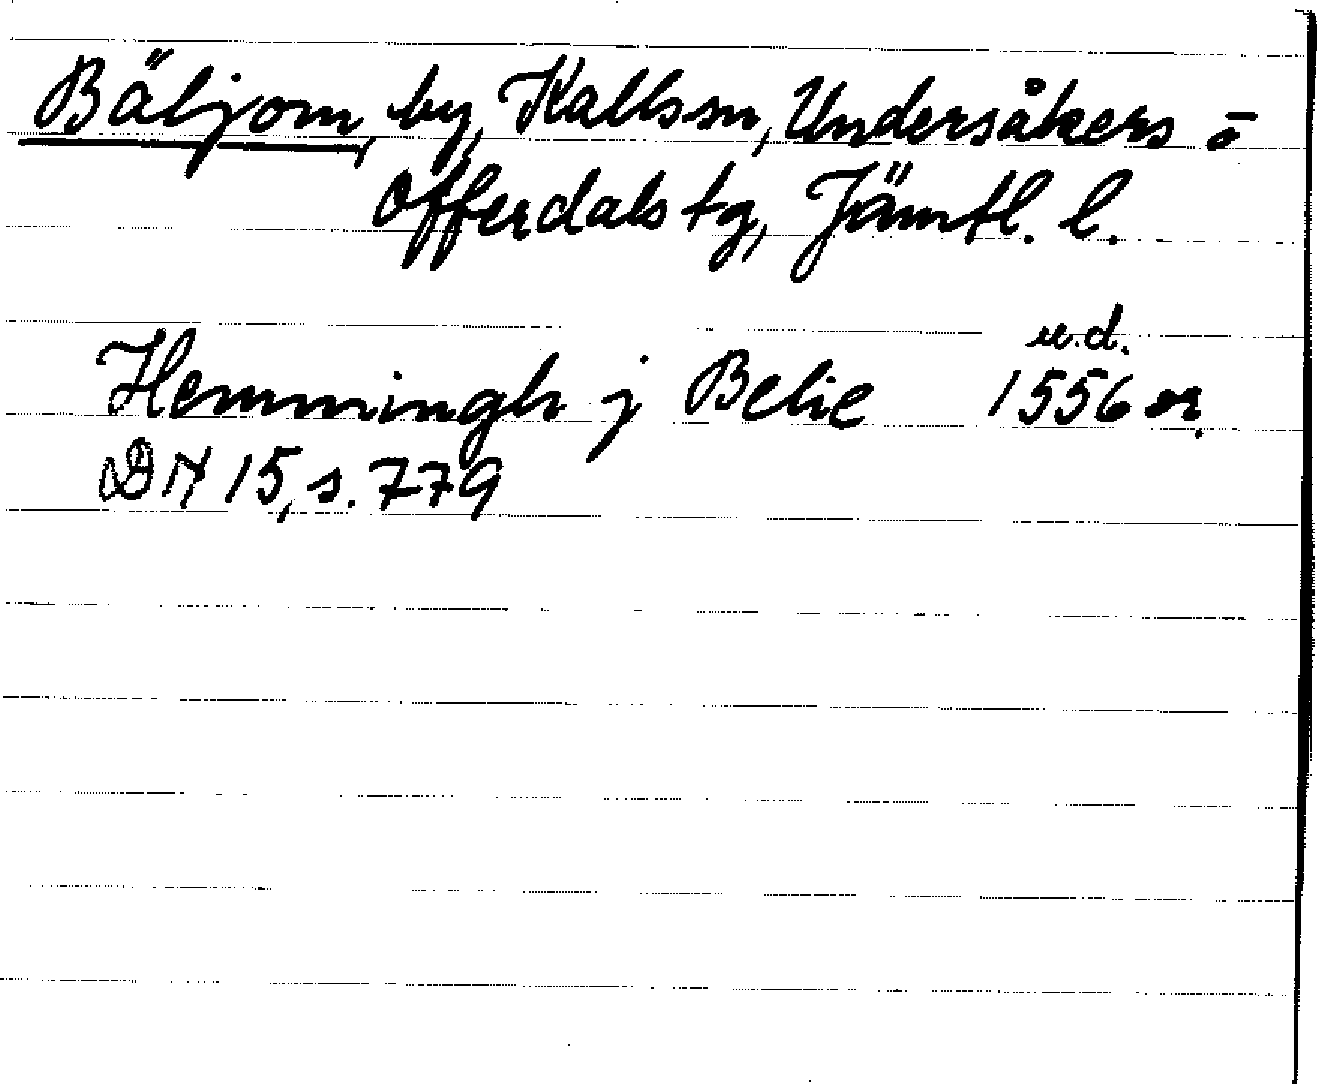 Bäljom, by, Kalls sn, Undersåkers o
Offerdals tg, Jämtl. l.
u.d.
Hemmingh j Belie 1556 or.
DN 15, s. 779